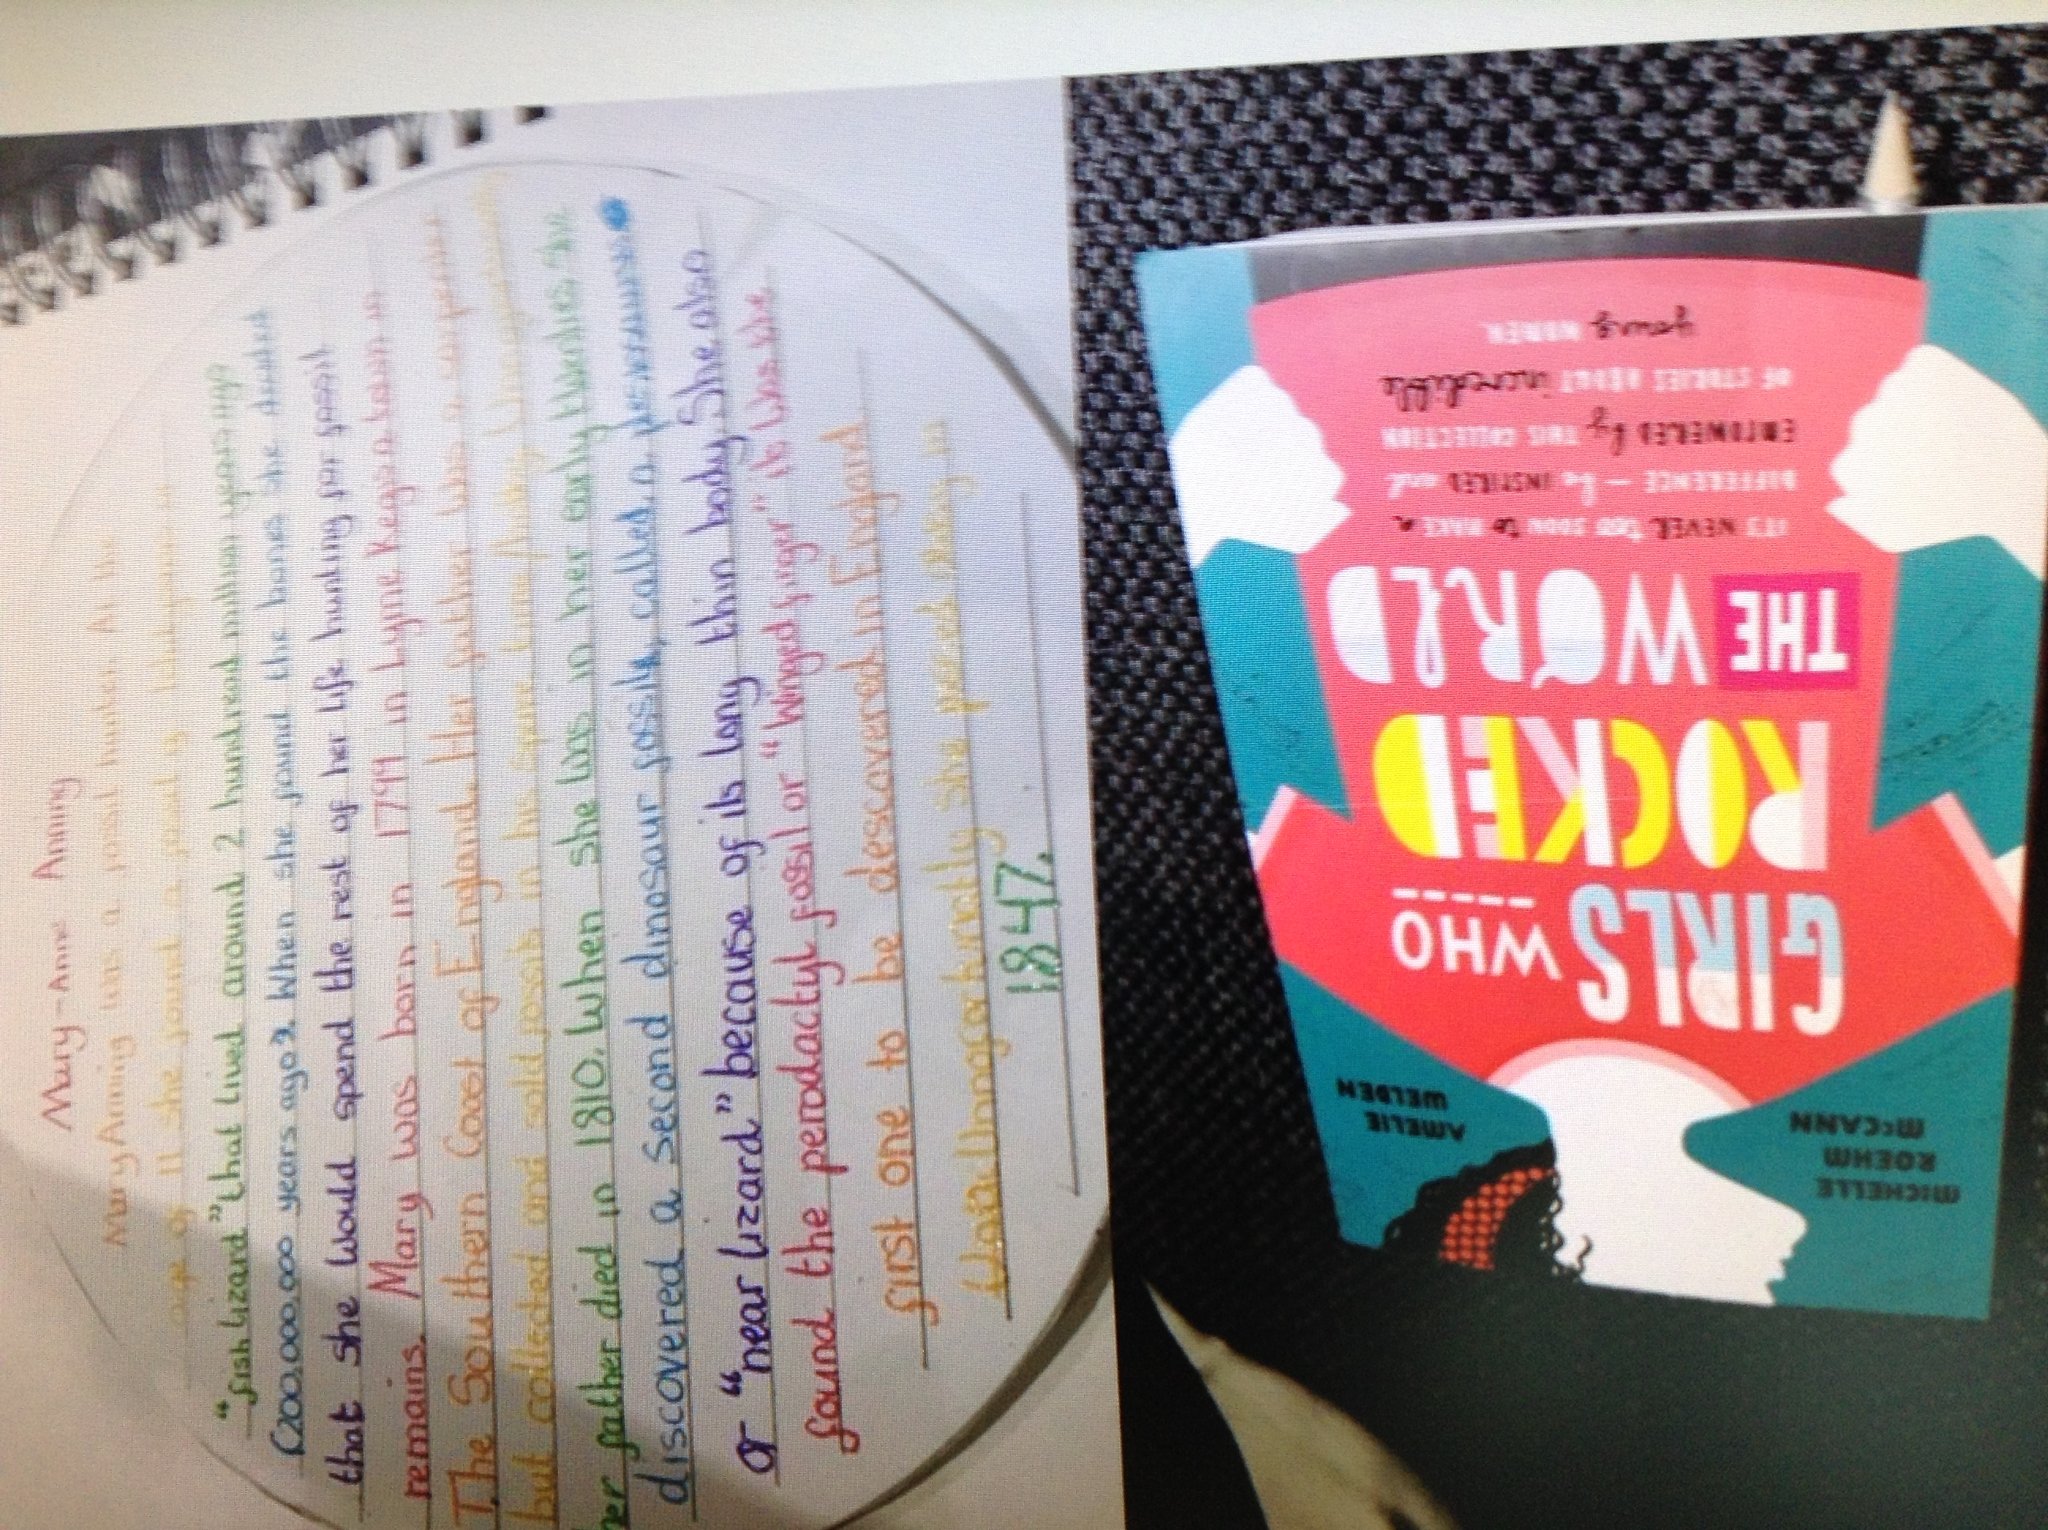 MICHELLE
ROEHM
McCANN
AMELIE
WELDEN
GIRLS WHO
ROCKED
THE WORLD
IT'S NEVER TOO SOON to MAKE a
DIFFERENCE – be INSPIRED and
EMPOWERED by THIS COLLECTION
OF STORIES ABOUT incredible
young WOMEN.
Mary-Anne Anning
Mary Anning was a fossil hunter. At the
age of 11 she found a
"fish lizard" that lived around 2 hundread million years ago
(200,000,000 years ago). When she found the bones she decided
that she would spend the rest of her life hunting for fossil
remains. Mary was born in 1799 in Lyme Regis a town in
The Southern Coast of England. Her father was a
but collected and sold fossils in his spare time
her father died in 1810. When she was in her early twenties she
discovered a second dinosaur fossils, called a
or "near lizard" because of its long thin body. She also
found the perodactyl fossil or "Winged finger" it was the
first one to be descovered in England
she passed away in
1847.